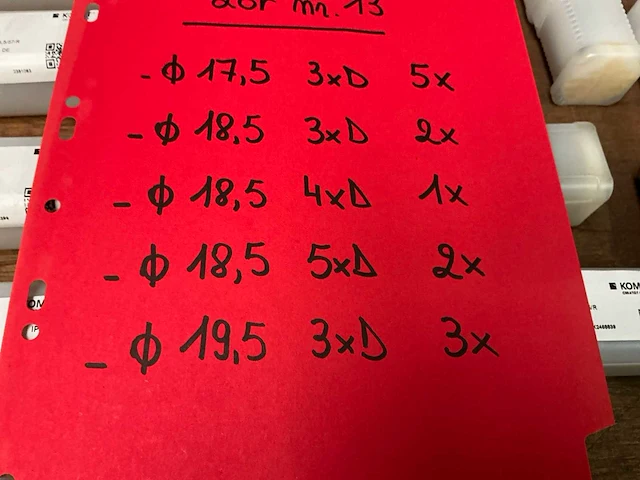 Los nr. 13
- Φ 17,5 3xD 5x
- Φ 18.5 3xD 2x
- Φ 18,5 4xD 1x
- Φ 18,5 5xD 2x
- Φ 19,5 3xD 3x
KOM